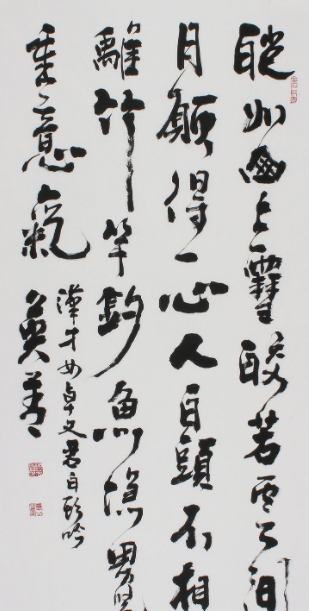 皑如山上雪皎若雲间
月願得一心人白頭不相
離竹竿釣魚男
重意氣
漢才女卓文君白頭吟